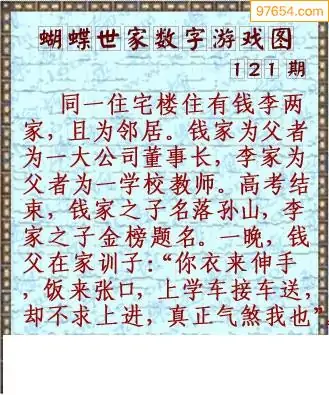 97654.com
蝴蝶世家数字游戏图
121期
同一住宅楼住有钱李两
家，且为邻居。钱家为父者
为一大公司董事长，李家为
父者为一学校教师。高考结
束，钱家之子名落孙山，李
家之子金榜题名。一晚，钱
父在家训子：“你衣来伸手
，饭来张口，上学车接车送，
却不求上进，真正气煞我也”.